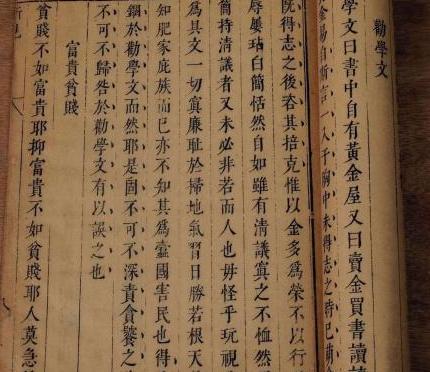 勸學文
學文曰書中自有黃金屋又曰賣金買書讀
金易自斯言一入于胸中未得志之時已萌
旣得志之後恣其掊克惟以金多爲榮不以行
辱屢玷白簡恬然自如雖有清議寘之不恤然
簡持清議者又未必非若而人也毋怪乎玩視
爲具文一切寘廉耻於掃地氣習日勝若根天
知肥家庇族而已亦不知其爲蠹國害民也得
錮於勸學文而然耶是固不可不深責貪饕之
不可不歸咎於勸學文有以誤之也
富貴貧賤
貧賤不如富貴耶抑富貴不如貧賤耶人莫急